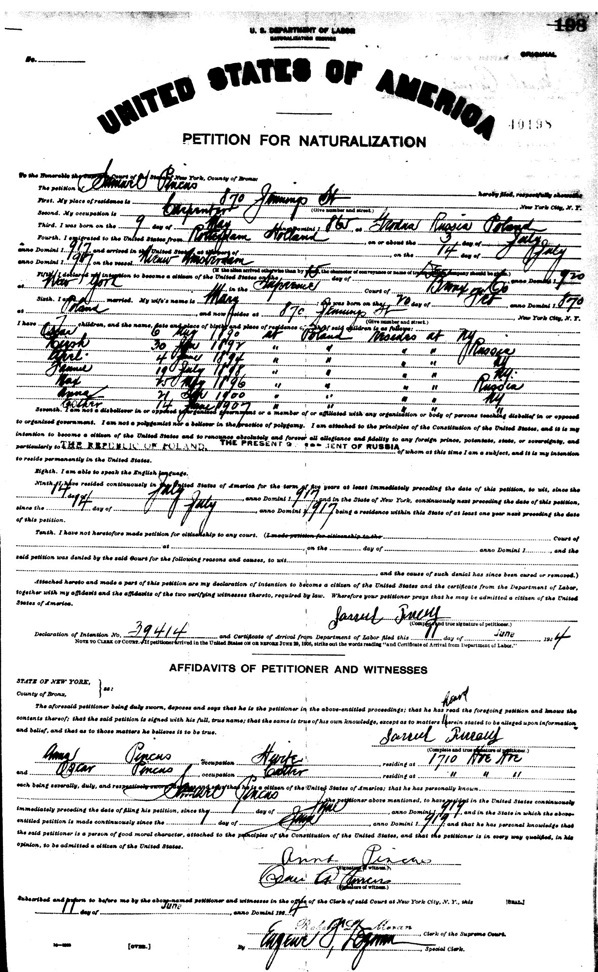 198
U. S. DEPARTMENT OF LABOR
NATURALIZATION SERVICE
No.
ORIGINAL
UNITED STATES OF AMERICA
40198
PETITION FOR NATURALIZATION
To the Honorable the Court of New York, County of Bronx:
The petition Samuel Pincus hereby filed, respectfully
First. My place of residence is 870 Jennings St New York City, N. Y.
(Give number and street.)
Second. My occupation is Carpenter
Third. I was born on the 9 day of May anno Domini 1 865 Grodna Russia Poland
Fourth. I emigrated to the United States from Rotterdam Holland on or about the 3 day of July
anno Domini 1 917 and arrived in the United States
on the 14 day of July
anno Domini 1 917 on the vessel Nieuw Amsterdam
Fifth. I declared my intention to become a citizen of the United States on the 15 day of 920
at New York, in the Supreme Court of Bronx Co
Sixth. I am married. My wife's name is Mary was born on the 20 day of Oct anno Domini 1 870
at and now resides at 870 Jennings St
I have children, and the name, date and place of birth, and place of residence of said children is as follows:
6 Aug 1890 at Poland resides at NY
30 1892 " " " " Russia
4 1894 " " " " NY
19 July 1898 " " " " NY
Max 25 1896 " " " " Russia
Anna 21 1900 " " " " NY
14 June 1907 " " " "
Seventh. I am not a disbeliever in or opposed to organized government or a member of or affiliated with any organization or body of persons teaching disbelief in or opposed
to organized government. I am not a polygamist nor a believer in the practice of polygamy. I am attached to the principles of the Constitution of the United States, and it is my
intention to become a citizen of the United States and to renounce absolutely and forever all allegiance and fidelity to any foreign prince, potentate, state, or sovereignty, and
particularly to THE REPUBLIC OF POLAND, THE PRESENT GOVERNMENT OF RUSSIA of whom at this time I am a subject, and it is my intention
to reside permanently in the United States.
Eighth. I am able to speak the English language.
Ninth. I have resided continuously in the United States of America for the term of five years at least immediately preceding the date of this petition, to wit, since the
14 day of July anno Domini 1 917 and in the State of New York, continuously next preceding the date of this petition,
since the 14 day of July anno Domini 1 917 being a residence within this State of at least one year next preceding the date
of this petition.
Tenth. I have not heretofore made petition for citizenship to any court. (I made petition for citizenship to the Court of
at on the day of anno Domini 1, and the
said petition was denied by the said Court for the following reasons and causes, to wit,
and the cause of such denial has since been cured or removed.)
Attached hereto and made a part of this petition are my declaration of intention to become a citizen of the United States and the certificate from the Department of Labor,
together with my affidavit and the affidavits of the two verifying witnesses thereto, required by law. Wherefore your petitioner prays that he may be admitted a citizen of the United
States of America.
(Complete and true signature of petitioner.)
Declaration of Intention No. 39414 and Certificate of Arrival from Department of Labor filed this 11 day of June 192 4
NOTE TO CLERK OF COURT.—If petitioner arrived in the United States ON OR BEFORE JUNE 29, 1906, strike out the words reading "and Certificate of Arrival from Department of Labor."
AFFIDAVITS OF PETITIONER AND WITNESSES
STATE OF NEW YORK,
County of Bronx,
ss:
The aforesaid petitioner being duly sworn, deposes and says that he is the petitioner in the above-entitled proceedings; that he has heard read the foregoing petition and knows the
contents thereof; that the said petition is signed with his full, true name; that the same is true of his own knowledge, except as to matters therein stated to be alleged upon information
and belief, and that as to those matters he believes it to be true.
(Complete and true signature of petitioner.)
Anna Pincus occupation residing at 1710 Hoe Ave
and Oscar Pincus, occupation Cutter residing at " " "
each being severally, duly, and respectively sworn, deposes and says that he is a citizen of the United States of America; that he has personally known
Samuel Pincus the petitioner above mentioned, to have resided in the United States continuously
immediately preceding the date of filing his petition, since the day of anno Domini 1 919, and in the State in which the above-
entitled petition is made continuously since the day of anno Domini 1 919, and that he has personal knowledge that
the said petitioner is a person of good moral character, attached to the principles of the Constitution of the United States, and that the petitioner is in every way qualified, in his
opinion, to be admitted a citizen of the United States.
Anna Pincus
(Signature of witness.)
(Signature of witness.)
Subscribed and sworn to before me by the above-named petitioner and witnesses in the office of the Clerk of said Court at New York City, N. Y., this [SEAL]
11 day of June, anno Domini 192 4
Moran, Clerk of the Supreme Court.
[OVER.]
By Eugene, Special Clerk.